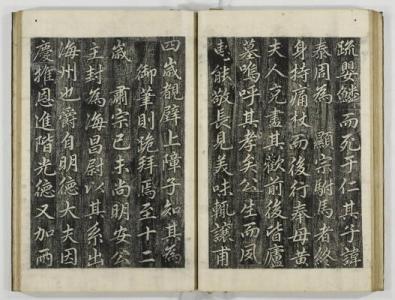 疏嬰鱗而死于仁其子諱
泰周為 顯宗駙馬者終
身持痛杖而後行奉母黃
夫人充盡其歡前後皆廬
墓嗚呼其孝矣公生而夙
惠能敬長見美味輒讓甫
四歲觀壁上障子知其為
御筆則跪拜焉至十二
歲 肅宗己未尚明安公
主封為海昌尉以其系出
海州也爵自明德大夫因
慶推恩進階光德又加兩